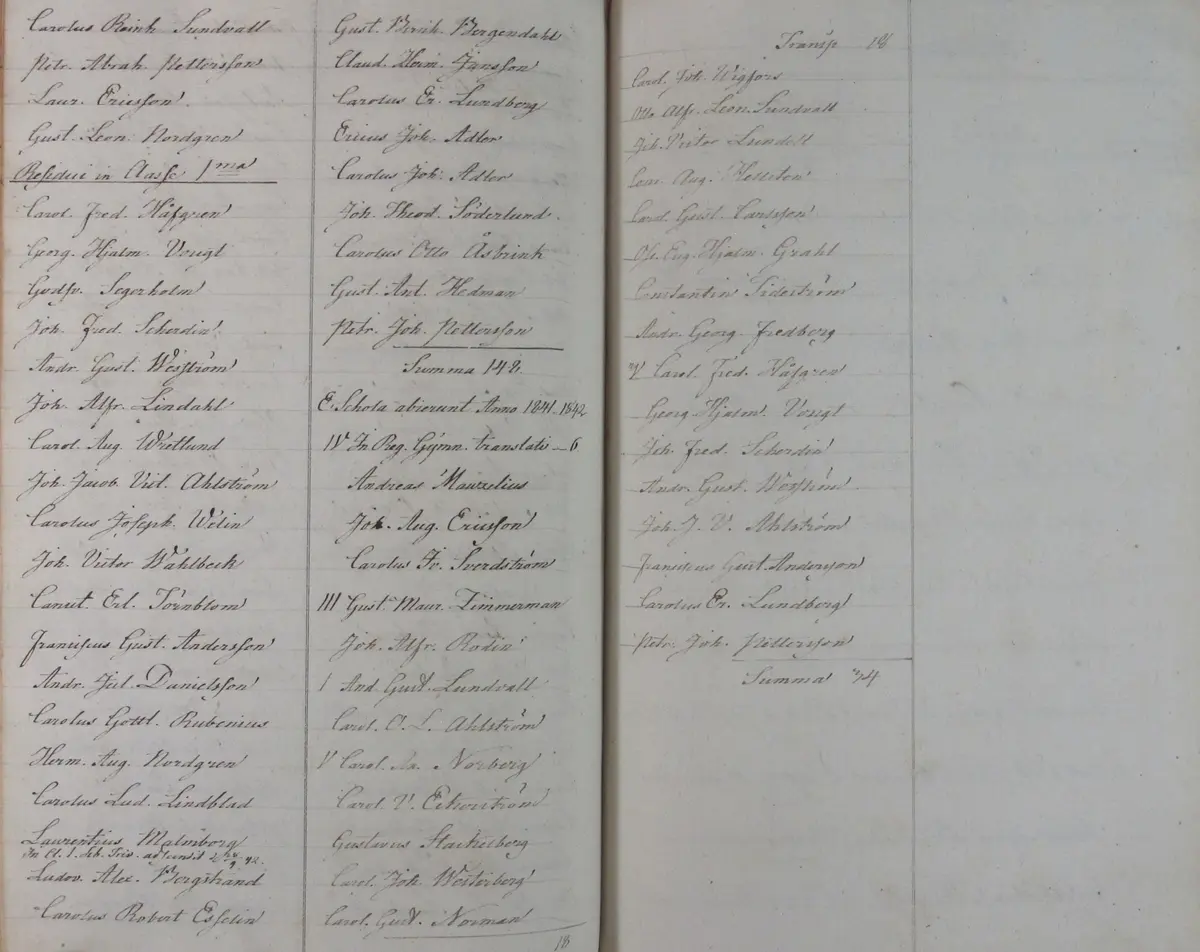 Carolus Reinh. Sundvall
Petr. Abrah. Pettersson
Laur. Ericsson
Gust. Leon. Nordgren
Residui in Classe 1ma
Carol. Fred. Håfgren
Georg. Hjalm. Vougt
Godfr. Segerholm
Joh. Fred. Scherdin
Andr. Gust. Wesström
Joh. Alfr. Lindahl
Carol. Aug. Wretlund
Joh. Jacob. Vict. Ahlström
Carolus Joseph. Welin
Joh. Victor Wahlbeck
Canut. Erl. Törnblom
Franciscus Gust. Andersson
Andr. Jul. Danielsson
Carolus Gottl. Rubenius
Herm. Aug. Nordgren
Carolus Lud. Lindblad
Laurentius Malmborg
In Cl. 1. Sch. Triv.
Ludov. Alex. Bergstrand
Carolus Robert Esselin
Gust. Brinh. Bergendahl
Claud. Herm. Jansson
Carolus Er. Lundberg
Ericus Joh. Adler
Carolus Joh. Adler
Joh. Theod. Söderlund.
Carolus Otto Åsbrink
Gust. Ant. Hedman
Petr. Joh. Pettersson
Summa 142.
E. Schola abierunt Anno 1841. 1842
IV In Reg. Gymn. translati – 6
Andreas Mauzelius
Joh. Aug. Ericsson
Carolus Fr. Sverdström
III Gust. Maur. Zimmerman
Joh. Alfr. Rodin
I And. Gust. Lundvall
Carol. O. L. Ahlström
V Carol. Norberg
Carol. V. Ekerström
Gustavus Stackelberg
Carol. Joh. Westerberg
Carol. Gust. Norman
18
Transp 18
Carol. Joh. Wigfors
Otto Alfr. Leon. Sundvall
Joh. Victor Lundell
Aug. Kellsten
Carol. Gust. Carlsson
Eug. Hjalm. Grahl
Constantin Sideström
Andr. Georg. Fredberg
Carol. Fred. Håfgren
Georg Hjalm. Vougt
Joh. Fred. Scherdin
Andr. Gust. Wesström
Joh. J. V. Ahlström
Franciscus Gust. Andersson
Carolus Er. Lundberg
Petr. Joh. Pettersson
Summa 34